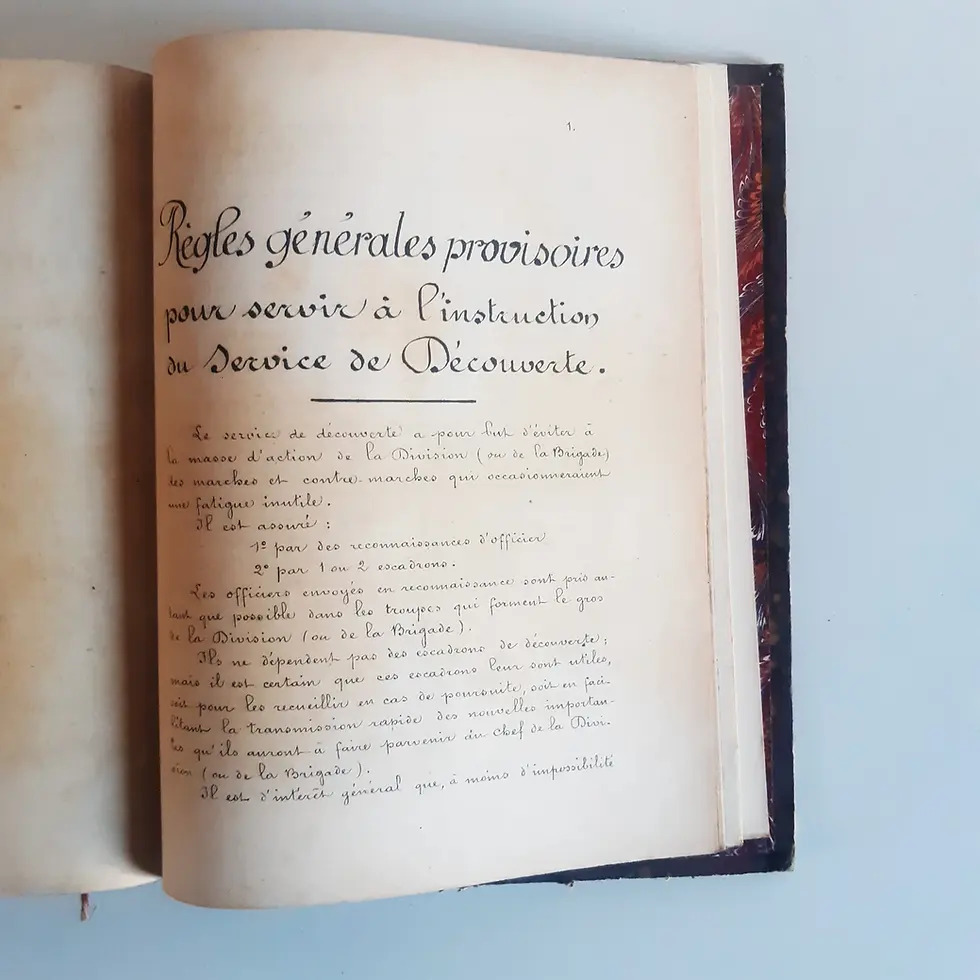 1.
Règles générales provisoires
pour servir à l'instruction
du Service de Découverte.
Le service de découverte a pour but d'éviter à
la masse d'action de la Division (ou de la Brigade)
des marches et contre-marches qui occasionneraient
une fatigue inutile.
Il est assuré :
1º par des reconnaissances d'officier
2º par 1 ou 2 escadrons.
Les officiers envoyés en reconnaissance sont pris au-
tant que possible dans les troupes qui forment le gros
de la Division (ou de la Brigade).
Ils ne dépendent pas des escadrons de découverte;
mais il est certain que ces escadrons leur sont utiles,
soit pour les recueillir en cas de poursuite, soit en faci-
litant la transmission rapide des nouvelles importan-
tes qu'ils auront à faire parvenir au Chef de la Divi-
sion (ou de la Brigade).
Il est d'intérêt général que, à moins d'impossibilité